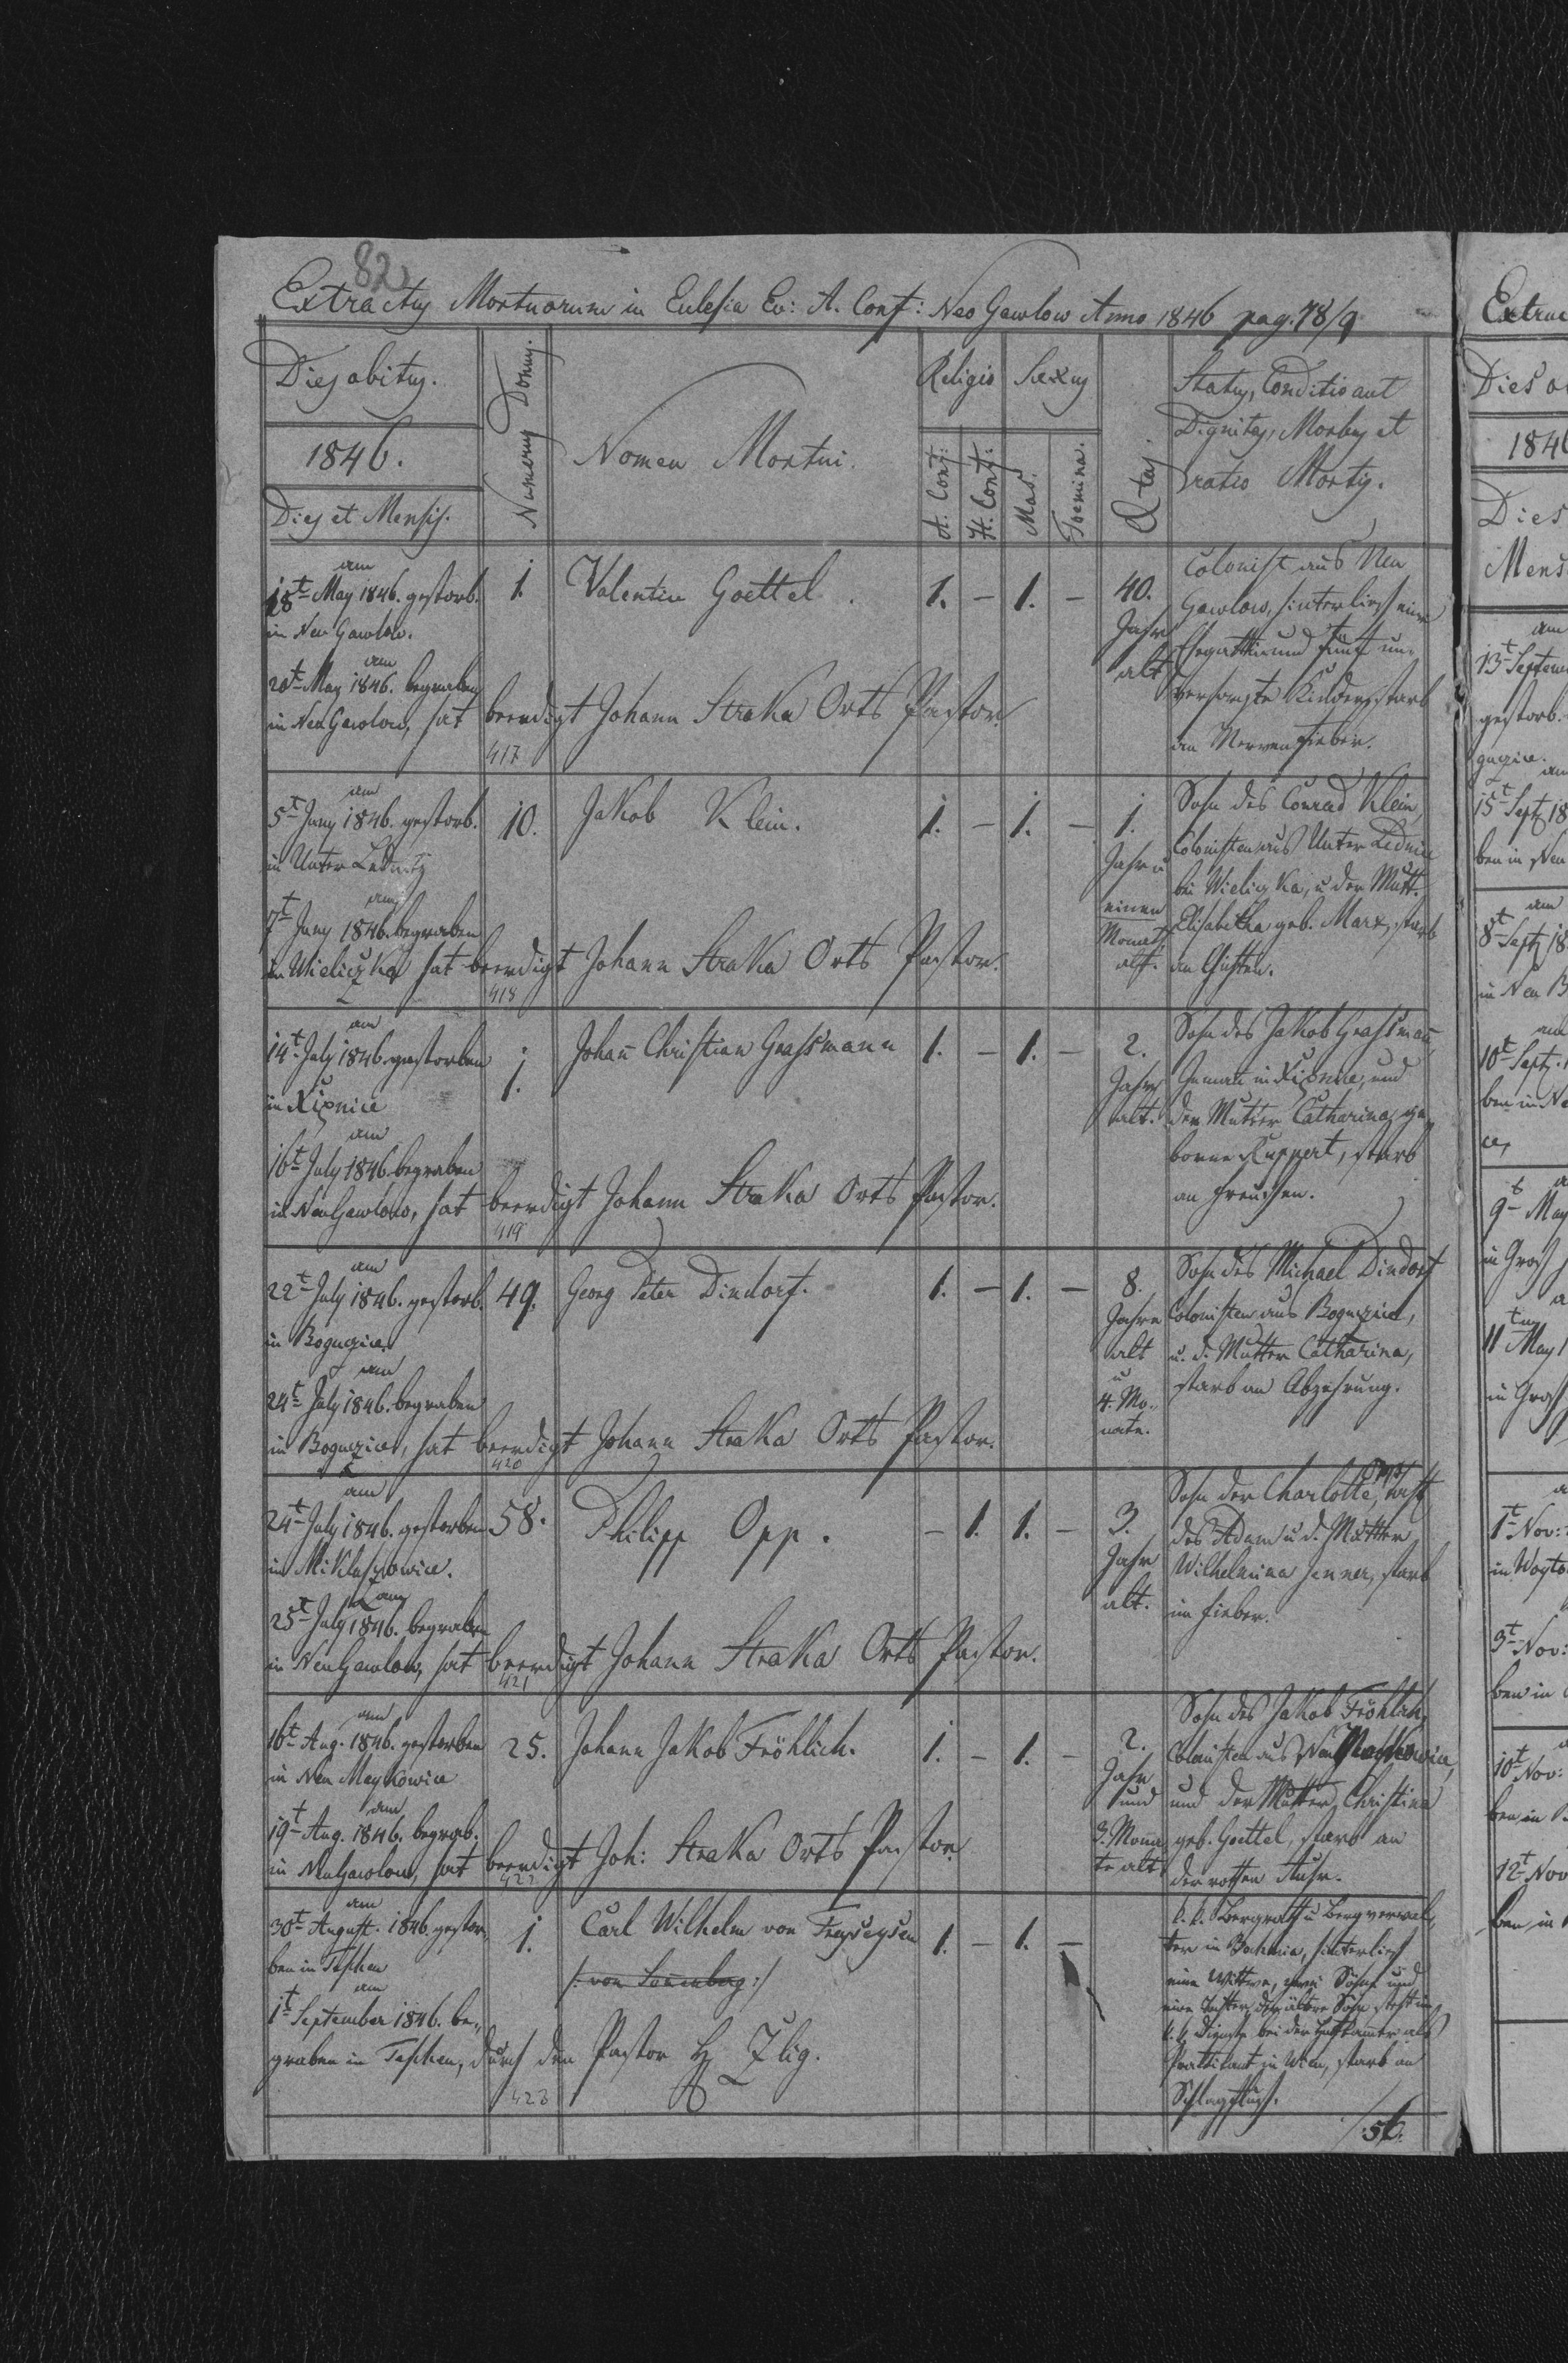 82
Extractus Mortuorum in Eclesia Ev: A. Conf: Neo Gawlow Anno 1846 pag. 78/9
Dies obitus.
1846.
Dies et Mensis.
Numerus Domus.
Nomen Mortui.
Religio
A. Conf:
H. Conf:
Sexus
Mas.
Foemina.
Aetas
Status, Conditio aut
Dignitas, Morbus et
ratio Mortis.
am
18t May 1846. gestorb.
in Neu Gawlow.
am
20t May 1846. begraben
in Neu Gawlow, hat beerdigt Johann Straka Orts Pastor
417
1.
Valentin Goettel.
1. – 1. –
40.
Jahr
alt
Colonist aus Neu
Gawlow, hinterließ eine
Ehegattin und fünf un-
versorgte Kinder, starb
an Nervenfieber.
am
5t Juny 1846. gestorb.
in Unter Lednitz
am
7t Juny 1846. begraben
in Wieliczka hat beerdigt Johann Straka Orts Pastor.
418
10.
Jakob Klein.
1. – 1. –
1.
Jahr u
einen
Monat
alt.
Sohn des Conrad Klein,
Colonisten aus Unter Lednice
bei Wieliczka, u der Mutt.
Elisabetha geb. Marx, starb
an Husten.
am
14t July 1846. gestorben
in Xiąznice
am
16t July 1846 begraben
in Neu Gawlow, hat beerdigt Johann Straka Orts Pastor.
419
1.
Johañ Christian Grassmann
1. – 1. –
2.
Jahr
alt.
Sohn des Jakob Grassmañ,
in und
der Mutter Catharina, ge-
borne Ruppert, starb
an
am
22t July 1846. gestorb.
in Bogucice
am
24t July 1846. begraben
in Bogucice, hat beerdigt Johann Straka Orts Pastor.
420
49.
Georg Peter Dindorf.
1. – 1. –
8.
Jahre
alt
u
4. Mo-
nate.
Sohn des Michael Dindorf
Colonisten aus Bogucice,
u. d. Mutter Catharina,
starb an Abzehrung.
am
24t July 1846. gestorben
in Miklaszowice.
am
25t July 1846. begraben
in Neu Gawlow, hat beerdigt Johann Straka Orts Pastor.
421
58.
Philipp Opp.
– 1. 1. –
3.
Jahr
alt.
Sohn der Charlotte
des Adam u d. Mutter
Wilhelmina Jenner, starb
im Fieber.
am
16t Aug. 1846. gestorben
in Neu Maykowice
am
19t Aug. 1846. begrab.
in Neu Gawlow, hat beerdigt Joh: Straka Orts Pastor.
25.
Johann Jakob Fröhlich.
1. – 1. –
2.
Jahr
und
3. Mona
te alt
Sohn des Jakob Fröhlich,
Colonisten aus Neu
und der Mutter Christina
geb. Goettel, starb an
der rothen Ruhr.
am
30t August. 1846. gestor-
ben in Teschen
am
1t September 1846. be-
graben in Teschen, durch den Pastor H Zlig.
423
1.
Carl Wilhelm von Freyseysen
/: von Sonnenberg :/
1. – 1. –
k. k. Bergrath u Bergverwal-
ter in Bochnia, hinterließ
eine Wittwe, zwei Söhne und
eine Tochter, der ältere Sohn steht im
k. k. Dienste bei der Hofkammer als
Praktikant in Wien, starb an
Schlagfluß.
/:56.
Extrac
Dies o
1846
Dies
Mens
am
13t Septem
gestorb.
gucice.
am
15t Sept 18
ben in Neu
am
8t Sept 18
in Neu B
am
10t Sept.
ben in Ne
9t May
in Groß
11t May 1
in Groß
1t Nov:
in Woyto
3t Nov:
ben in
10t Nov:
ben in
12t Nov
ben in